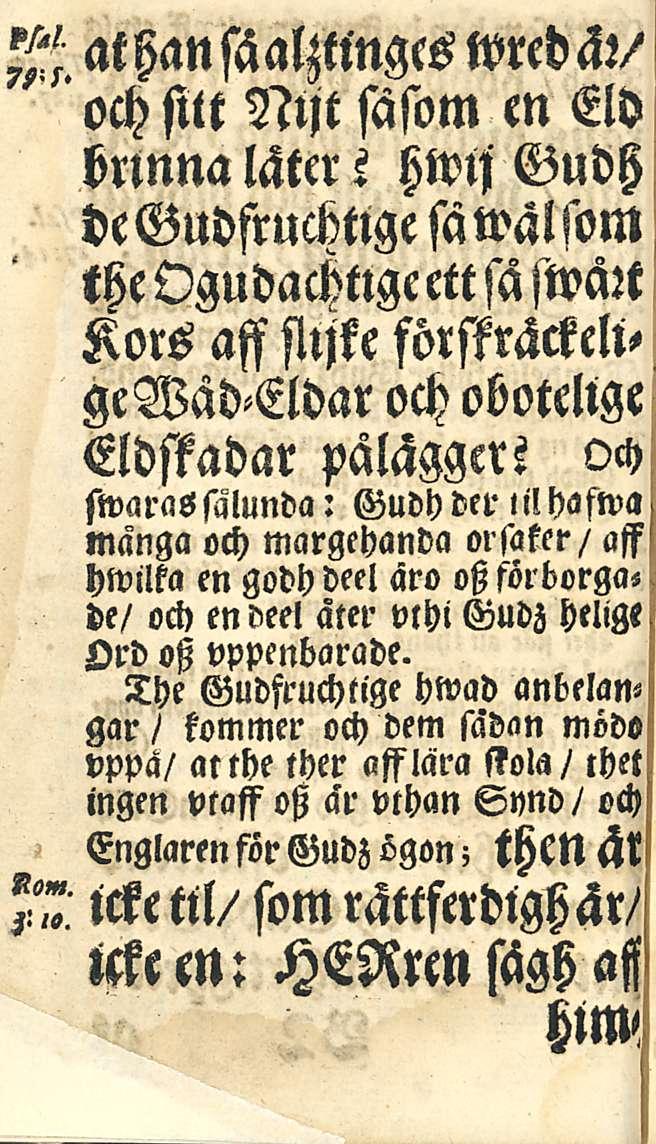 Psal.
79: 5.
at han så alztinges wred är/
och sitt Nijt såsom en Eld
brinna låter? hwij Gudh
de Gudfruchtige så wäl som
the Ogudachtige ett så swårt
Kors aff slijke förskräckeli-
ge Wåd-Eldar och obotelige
Eldskadar pålägger? Och
swaras sålunda: Gudh der til hafwa
många och margehanda orsaker / aff
hwilka en godh deel äro oß förborga-
de/ och en deel åter vthi Gudz helige
Ord oß vppenbarade.
The Gudfruchtige hwad anbelan-
gar / kommer och dem sådan mödo
vppå/ at the ther aff lära skola / thet
ingen vtaff oß är vthan Synd / och
Englaren för Gudz ögon; then är
Rom.
3: 10.
icke til/ som rättferdigh är/
icke en: HERren sågh aff
him-